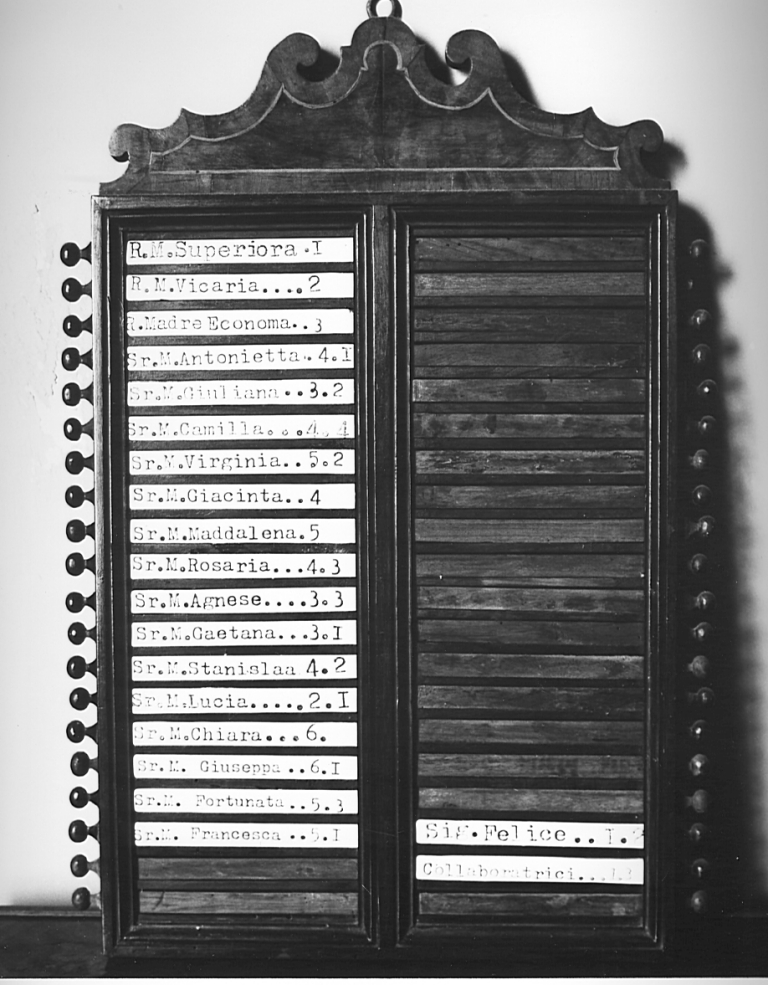 R.M.Superiora.I
R.M.Vicaria....2
R.Madre Economa..3
Sr.M.Antonietta.4.I
Sr.M.Giuliana..3.2
Sr.M.Camilla....4.4
Sr.M.Virginia..5.2
Sr.M.Giacinta..4
Sr.M.Maddalena.5
Sr.M.Rosaria...4.3
Sr.M.Agnese....3.3
Sr.M.Gaetana...3.I
Sr.M.Stanislaa 4.2
Sr.M.Lucia.....2.I
Sr.M.Chiara...6.
Sr.M. Giuseppa..6.I
Sr.M. Fortunata..5.3
Sr.M. Francesca..5.I
Sig.Felice..I.
Collaboratrici...